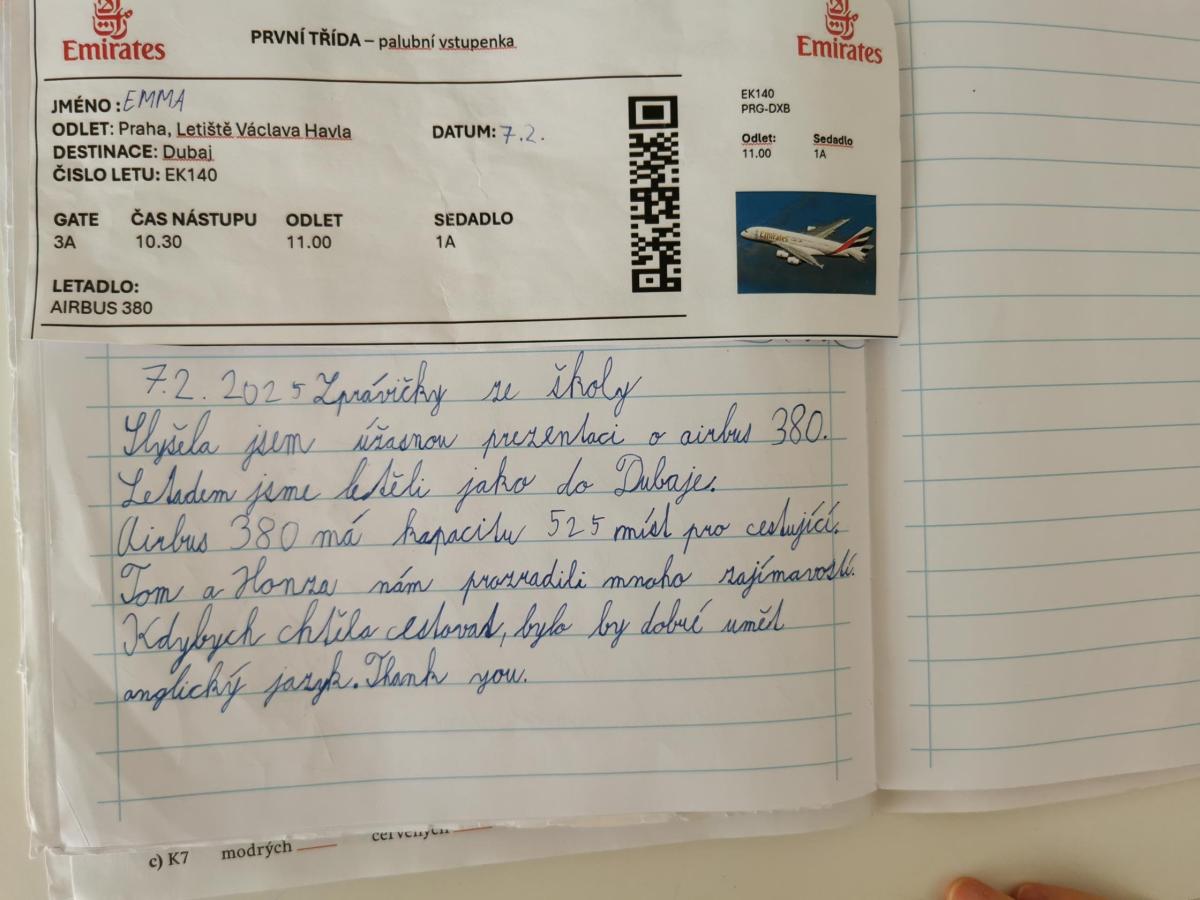 Emirates
PRVNÍ TŘÍDA – palubní vstupenka
Emirates
JMÉNO : EMMA
ODLET: Praha, Letiště Václava Havla
DATUM: 7.2.
DESTINACE: Dubaj
ČISLO LETU: EK140
GATE ČAS NÁSTUPU ODLET SEDADLO
3A 10.30 11.00 1A
LETADLO:
AIRBUS 380
EK140
PRG-DXB
Odlet: Sedadlo
11.00 1A
Emirates
7.2. 2025 Zprávičky ze školy
Slyšela jsem úžasnou prezentaci o airbus 380.
Letadem jsme letěli jako do Dubaje.
Airbus 380 má kapacitu 525 míst pro cestující.
Tom a Honza nám prozradili mnoho zajímavostí.
Kdybych chtěla cestovat, bylo by dobré umět
anglický jazyk. Thank you.
c) K7 modrých červených